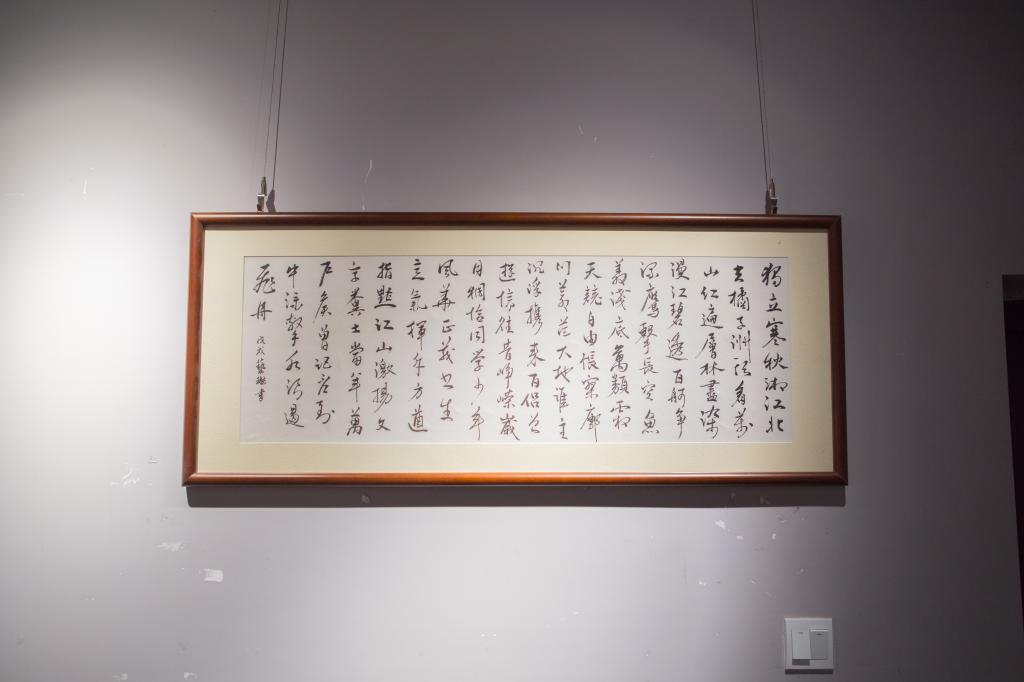 獨立寒秋湘江北
去橘子洲頭看萬
山紅遍層林盡染
漫江碧透百舸爭
流鷹擊長空魚
翔淺底萬類霜
天競自由悵寥廓
问蒼茫大地誰主
沉浮攜來百侶曾
遊憶往昔崢嶸歲
月稠恰同學少年
風華正茂书生
意氣揮斥方遒
指點江山激揚文
字糞土當年萬
戶侯曾记否到
中流擊水浪遏
飛舟
戊戌藝書